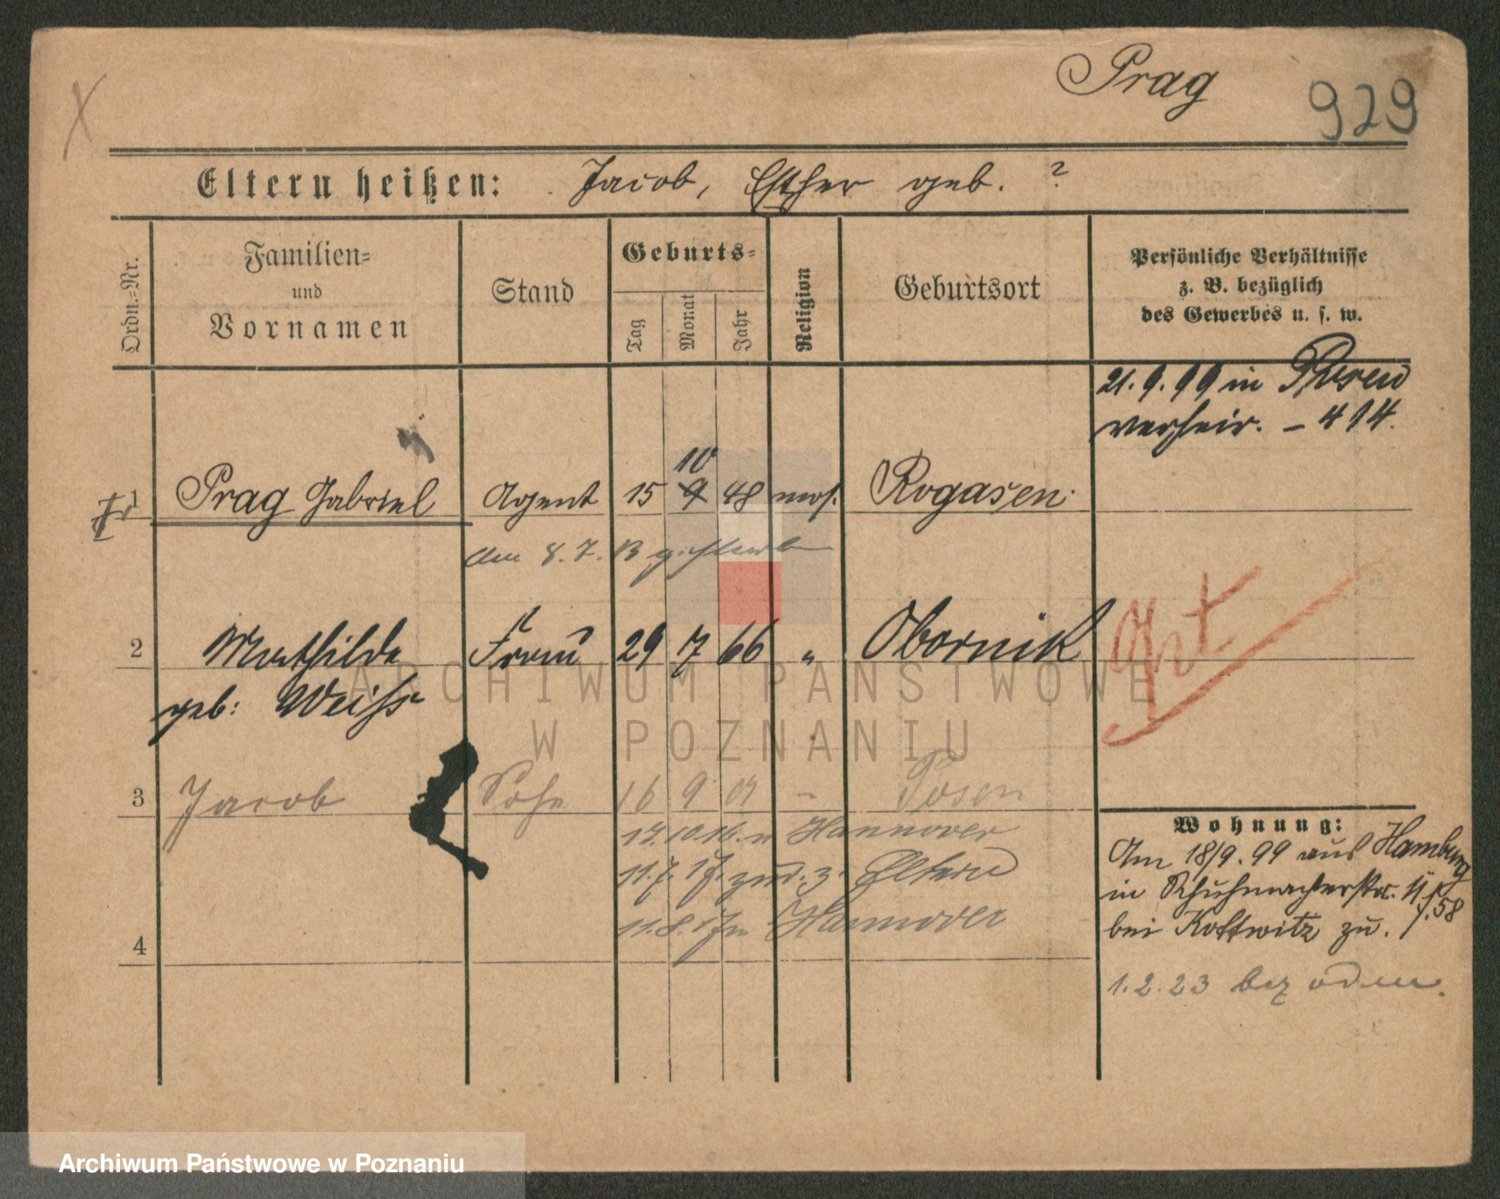 Prag
929
Eltern heißen: Jacob, Esther geb. ?
Ordn.-Nr.
Familien-
und
Vornamen
Stand
Geburts-
Tag
Monat
Jahr
Religion
Geburtsort
Persönliche Verhältnisse
z. B. bezüglich
des Gewerbes u. s. w.
21. 9. 99 in Posen
verheir. – 414.
10
1 Prag Gabriel Agent 15 9 48 mos. Rogasen
am 8. 7. 13 gestorben
2 Mathilde Frau 29 7 66 " Obornik
geb: Weiss
3 Jacob Sohn 16 9 01 " Posen
17. 10. 16. n Hannover
11. 7. 17. zur. z. Eltern
11. 8. 17 n Hannover
4
Wohnung:
Am 18/9. 99 aus Hamburg
in Schuhmacherstr. 11
bei Kottwitz zu. 58
1. 2. 23
ARCHIWUM PAŃSTWOWE
W POZNANIU
Archiwum Państwowe w Poznaniu